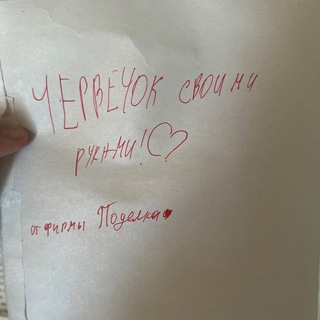 ЧЕРВЕЧОК СВОИМИ
РУКАМИ!
от ФИРМЫ Поделка